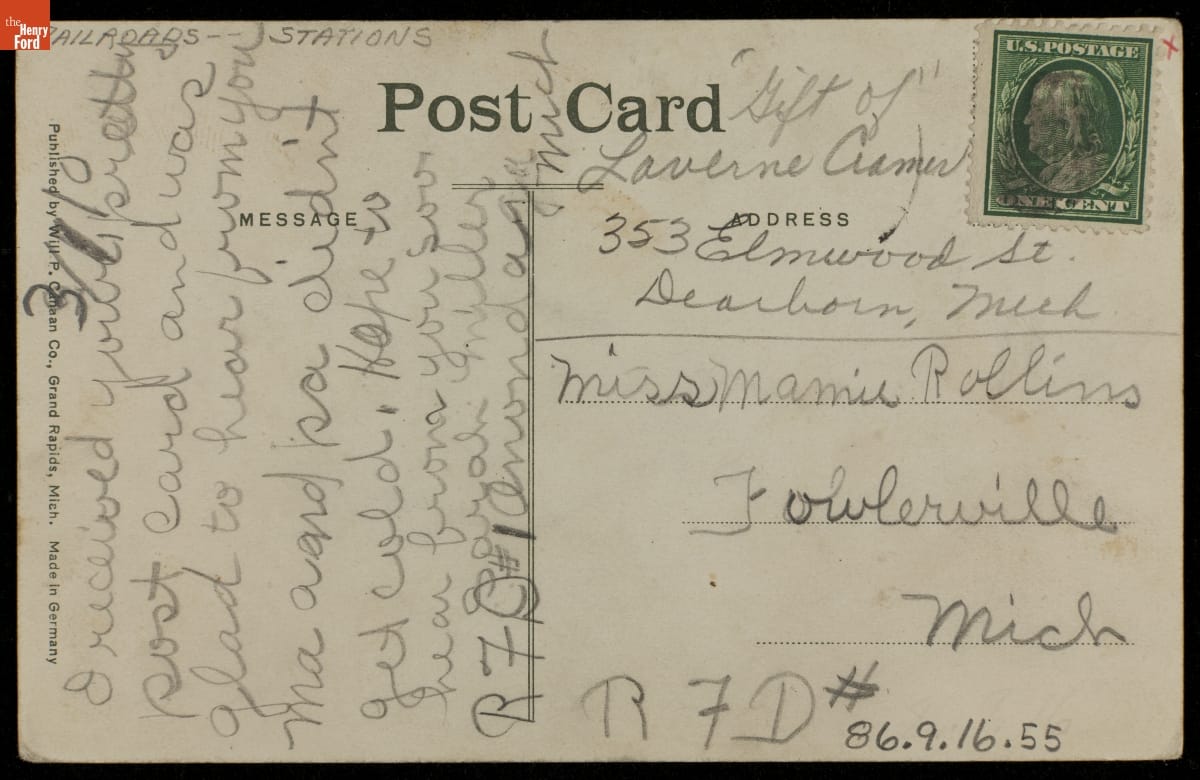 the
Henry
Ford
RAILROADS-- STATIONS
Post Card
"Gift of"
Laverne Cramer
353 Elmwood St.
Dearborn, Mich
U.S.POSTAGE
ONE CENT
x
MESSAGE
ADDRESS
Miss Mamie Rollins
Fowlerville
Mich
R F D #
86.9.16.55
Published by Will P. Canaan Co., Grand Rapids, Mich. Made in Germany
I received your pretty
post card and was
glad to hear from you
Ma and pa didnt
get cold. Hope to
hear from you soon
Sarah Miller
R F D #1 Onondaga
Mich